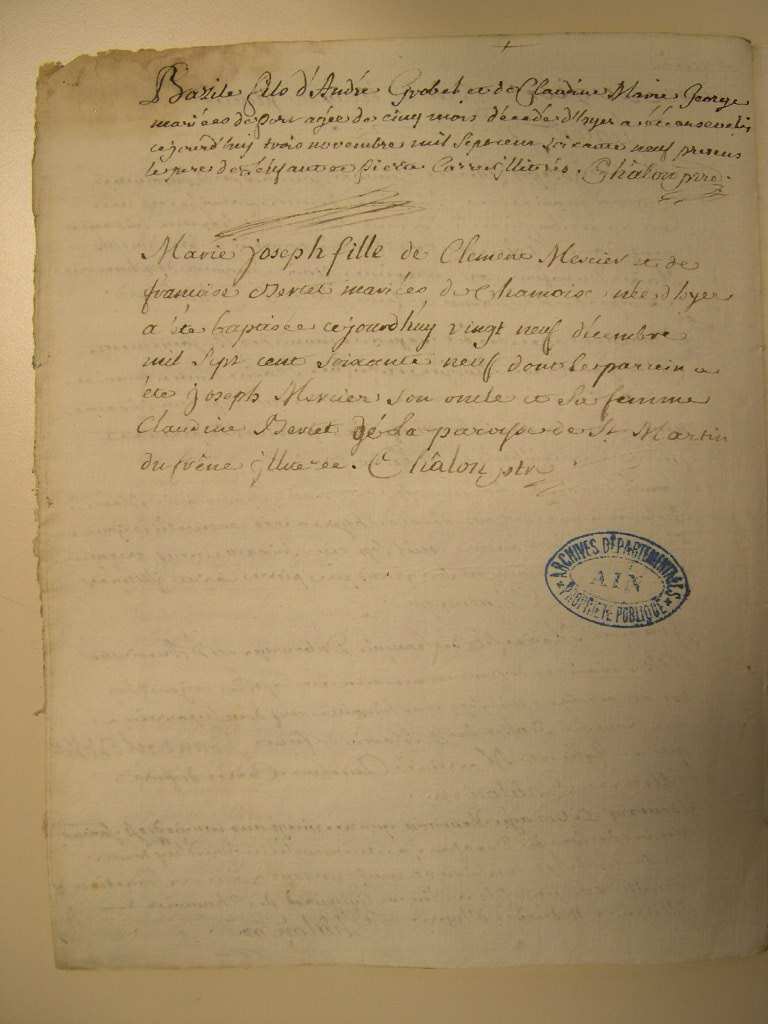 Bazile fils d'André Grobet et de Claudine Marie George
mariées de port agée de cinq mois décédé d'hyer a été ensevelis
cejourd'huy trois novembre mil sept cent soixante neuf présens
le père de l'enfant et pierre Carre illitérés. Châlon ptre.
Marie joseph fille de Clement Mercier et de
françoise Bertet mariées de Chamoise née d'hyer
a été baptisée cejourdhuy vingt neuf décembre
mil sept cent soixante neuf dont le parrein a
été joseph Mercier son oncle et sa femme
Claudine Bertet dé La paroisse de St Martin
du frêne illiterée. Châlon ptre
ARCHIVES DÉPARTEMENTALES
AIN
PROPRIÉTÉ PUBLIQUE